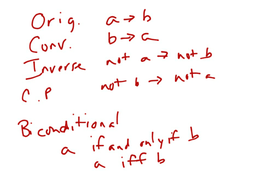 Orig. a → b
Conv. b → a
Inverse not a → not b
C.P not b → not a
Biconditional
a if and only if b
a iff b